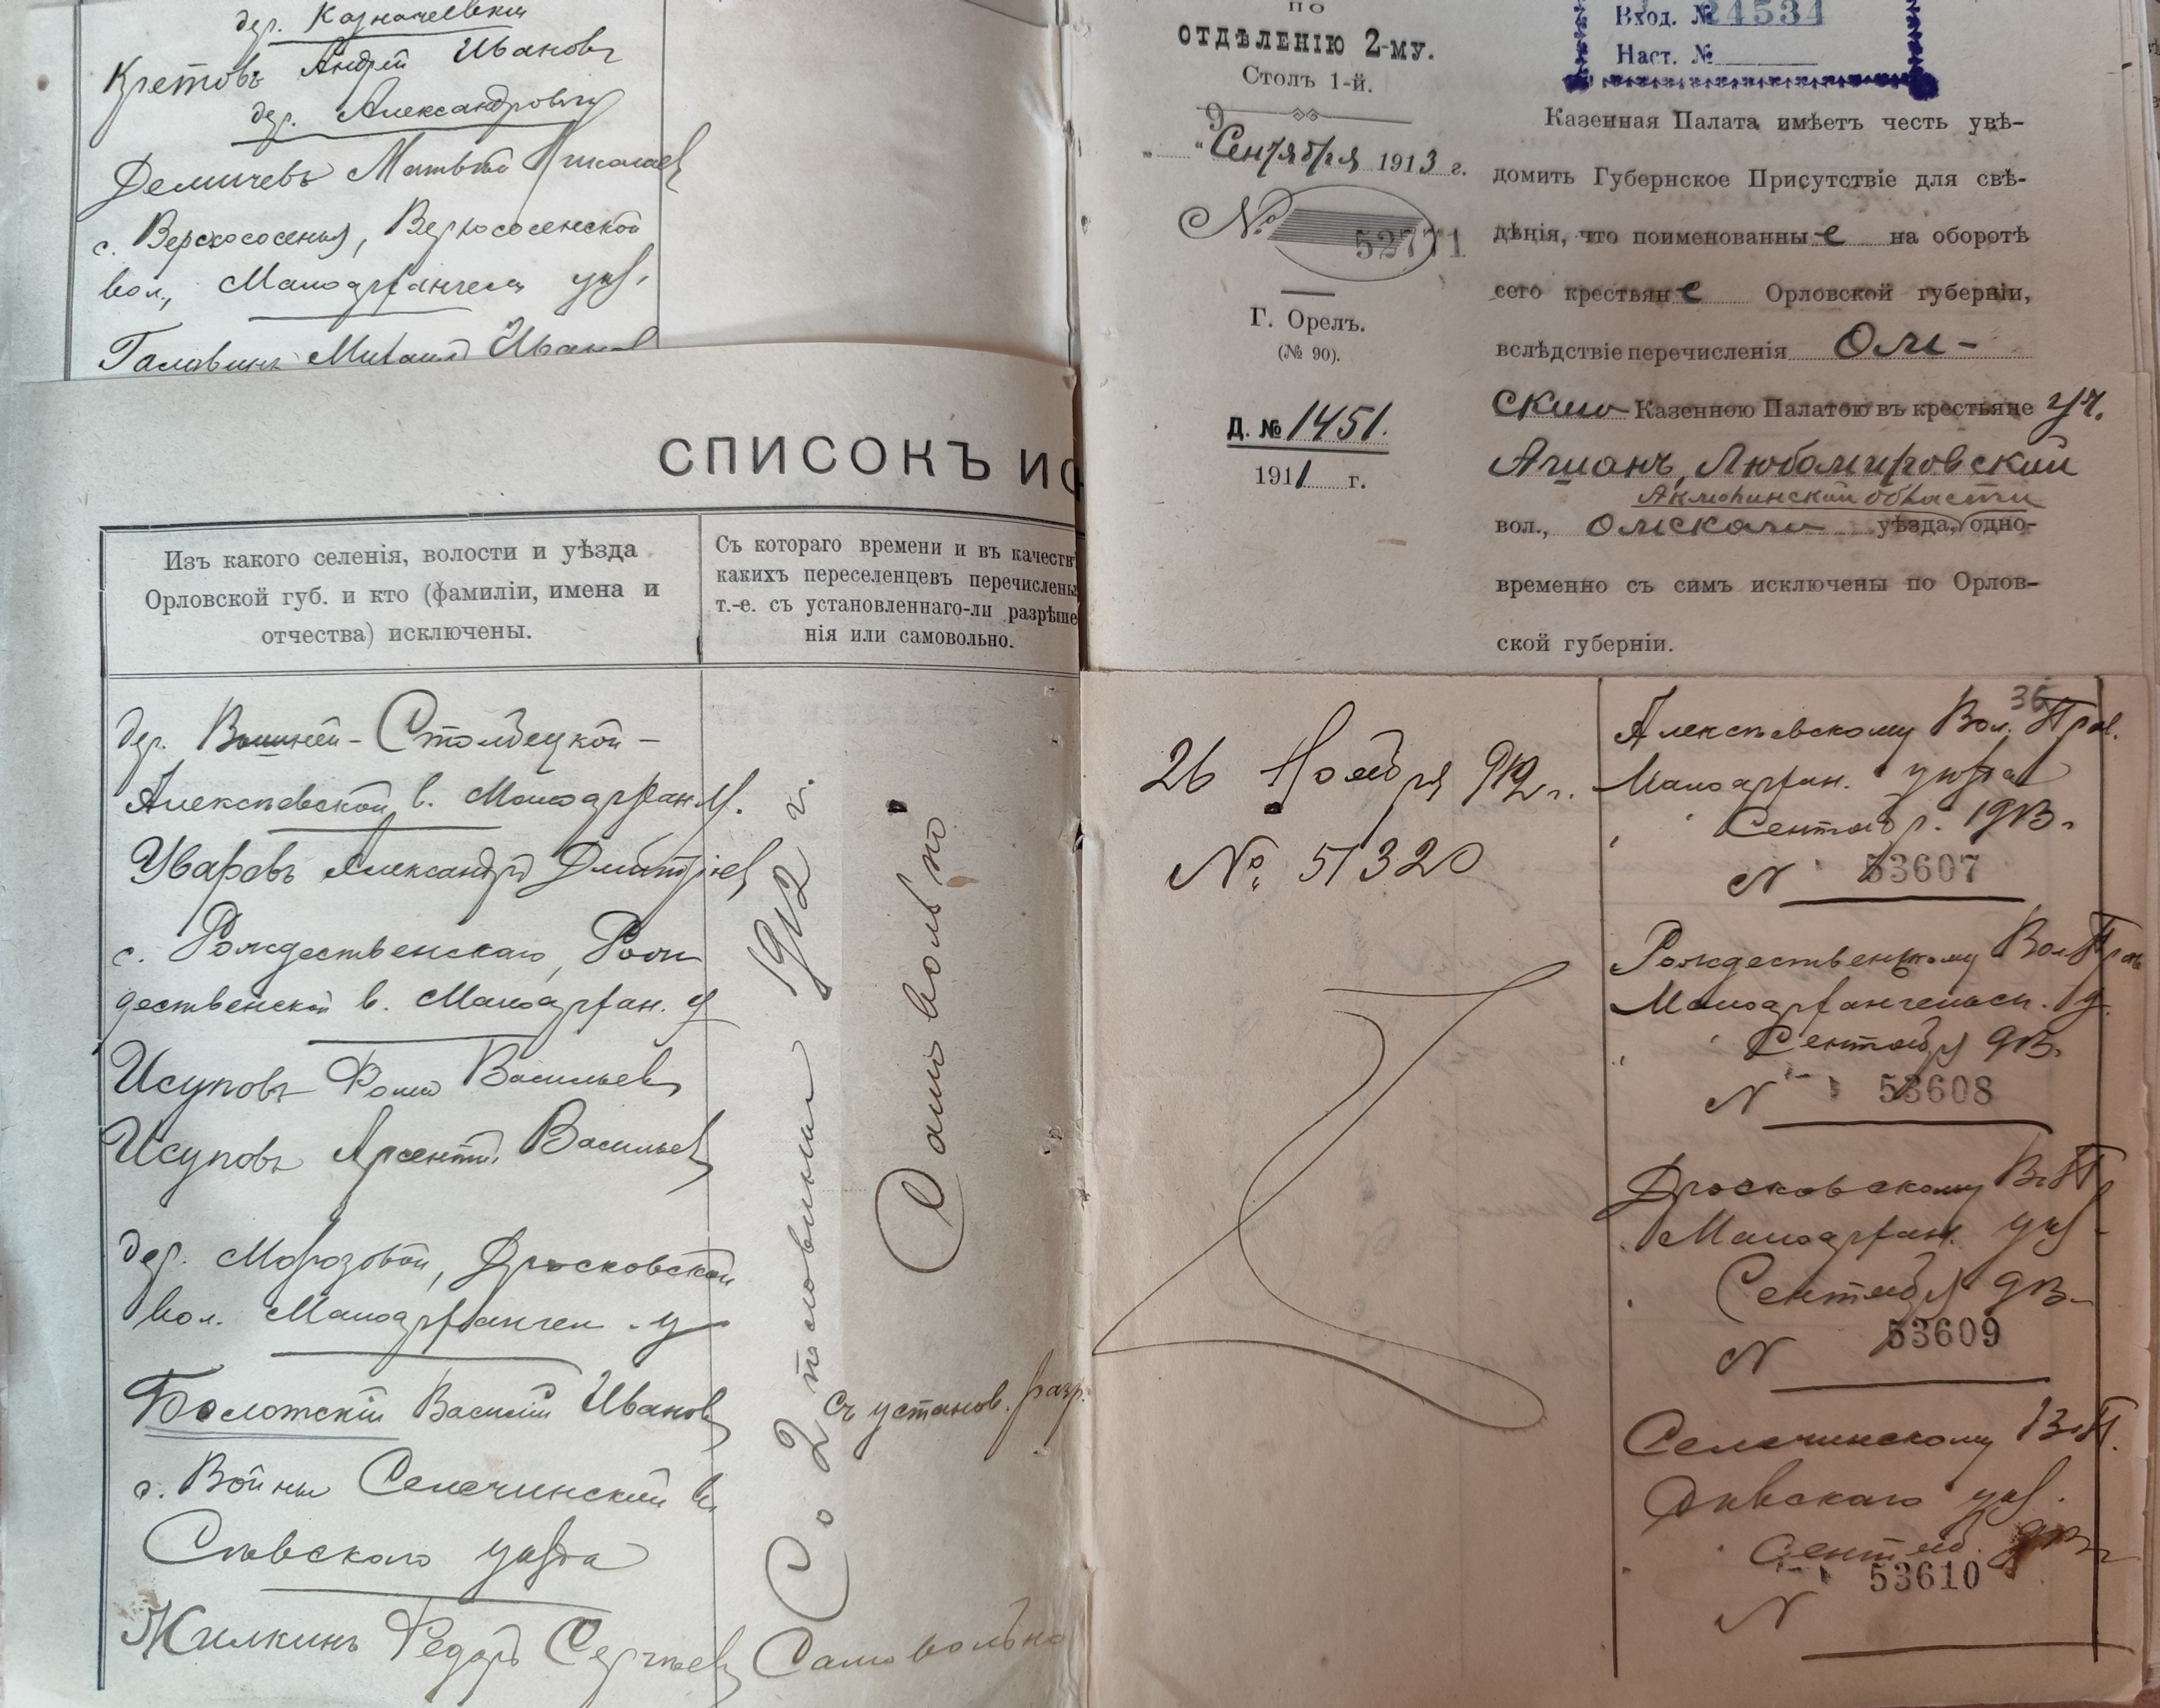 дер. Казначеевки
Кретовъ Андрей Ивановъ
дер. Александровки
Демичевъ Матвѣй Николаев
с. Верхососенья, Верхососенской
вол., Малоархангел уѣз.
Головинъ Михаилъ Иванов
СПИСОКЪ ИС
Изъ какого селенія, волости и уѣзда
Орловской губ. и кто (фамиліи, имена и
отчества) исключены.
Съ котораго времени и въ качествѣ
какихъ переселенцевъ перечислены
т.-е. съ установленнаго-ли разрѣше
нія или самовольно.
дер. Столбецкой-
Алексѣевской в. Малоархан. у.
Уваровъ Александръ Дмитріев
с. Рождественскаго, Рож
дественской в. Малоархан. у
Исуповъ Фома Васильев
Исуповъ Арсентій Васильев
дер. Морозовой, Дросковской
вол. Малоархангел. у
Болотскій Василій Иванов
с. Войны Селечинской в.
Сѣвскаго уѣзда
Жилкинъ Федоръ Сергѣев
Со 2 половины 1912 г.
Самовольно
съ установ. разр.
Самовольно
по
ОТДѢЛЕНІЮ 2-му.
Столъ 1-й.
9
„ “ Сентября 1913 г.
№ 52771
Г. Орелъ.
(№ 90).
Д. № 1451.
1911 г.
Вход. № 24534
Наст. №
Казенная Палата имѣетъ честь увѣ-
домить Губернское Присутствіе для свѣ-
дѣнія, что поименованные на оборотѣ
сего крестьяне Орловской губерніи,
вслѣдствіе перечисленія Ом-
скою Казенною Палатою въ крестьяне уч.
Агшанъ, Любомировской
Акмолинской области
вол., Омскаго уѣзда, одно-
временно съ симъ исключены по Орлов-
ской губерніи.
26 Ноября 912 г.
№ 51320
36
Алексѣевскому Вол. Прав.
Малоархан. уѣзда
Сентябр. 1913 г.
N 53607
Рождественскому Вол. Прав
Малоархангельск. у.
Сентября 913.
N 53608
Дросковскому В. П.
Малоархан. уѣз
Сентября 913
N 53609
Селечинскому В. П.
Сѣвскаго уѣз.
Сентяб. 913 г
N 53610